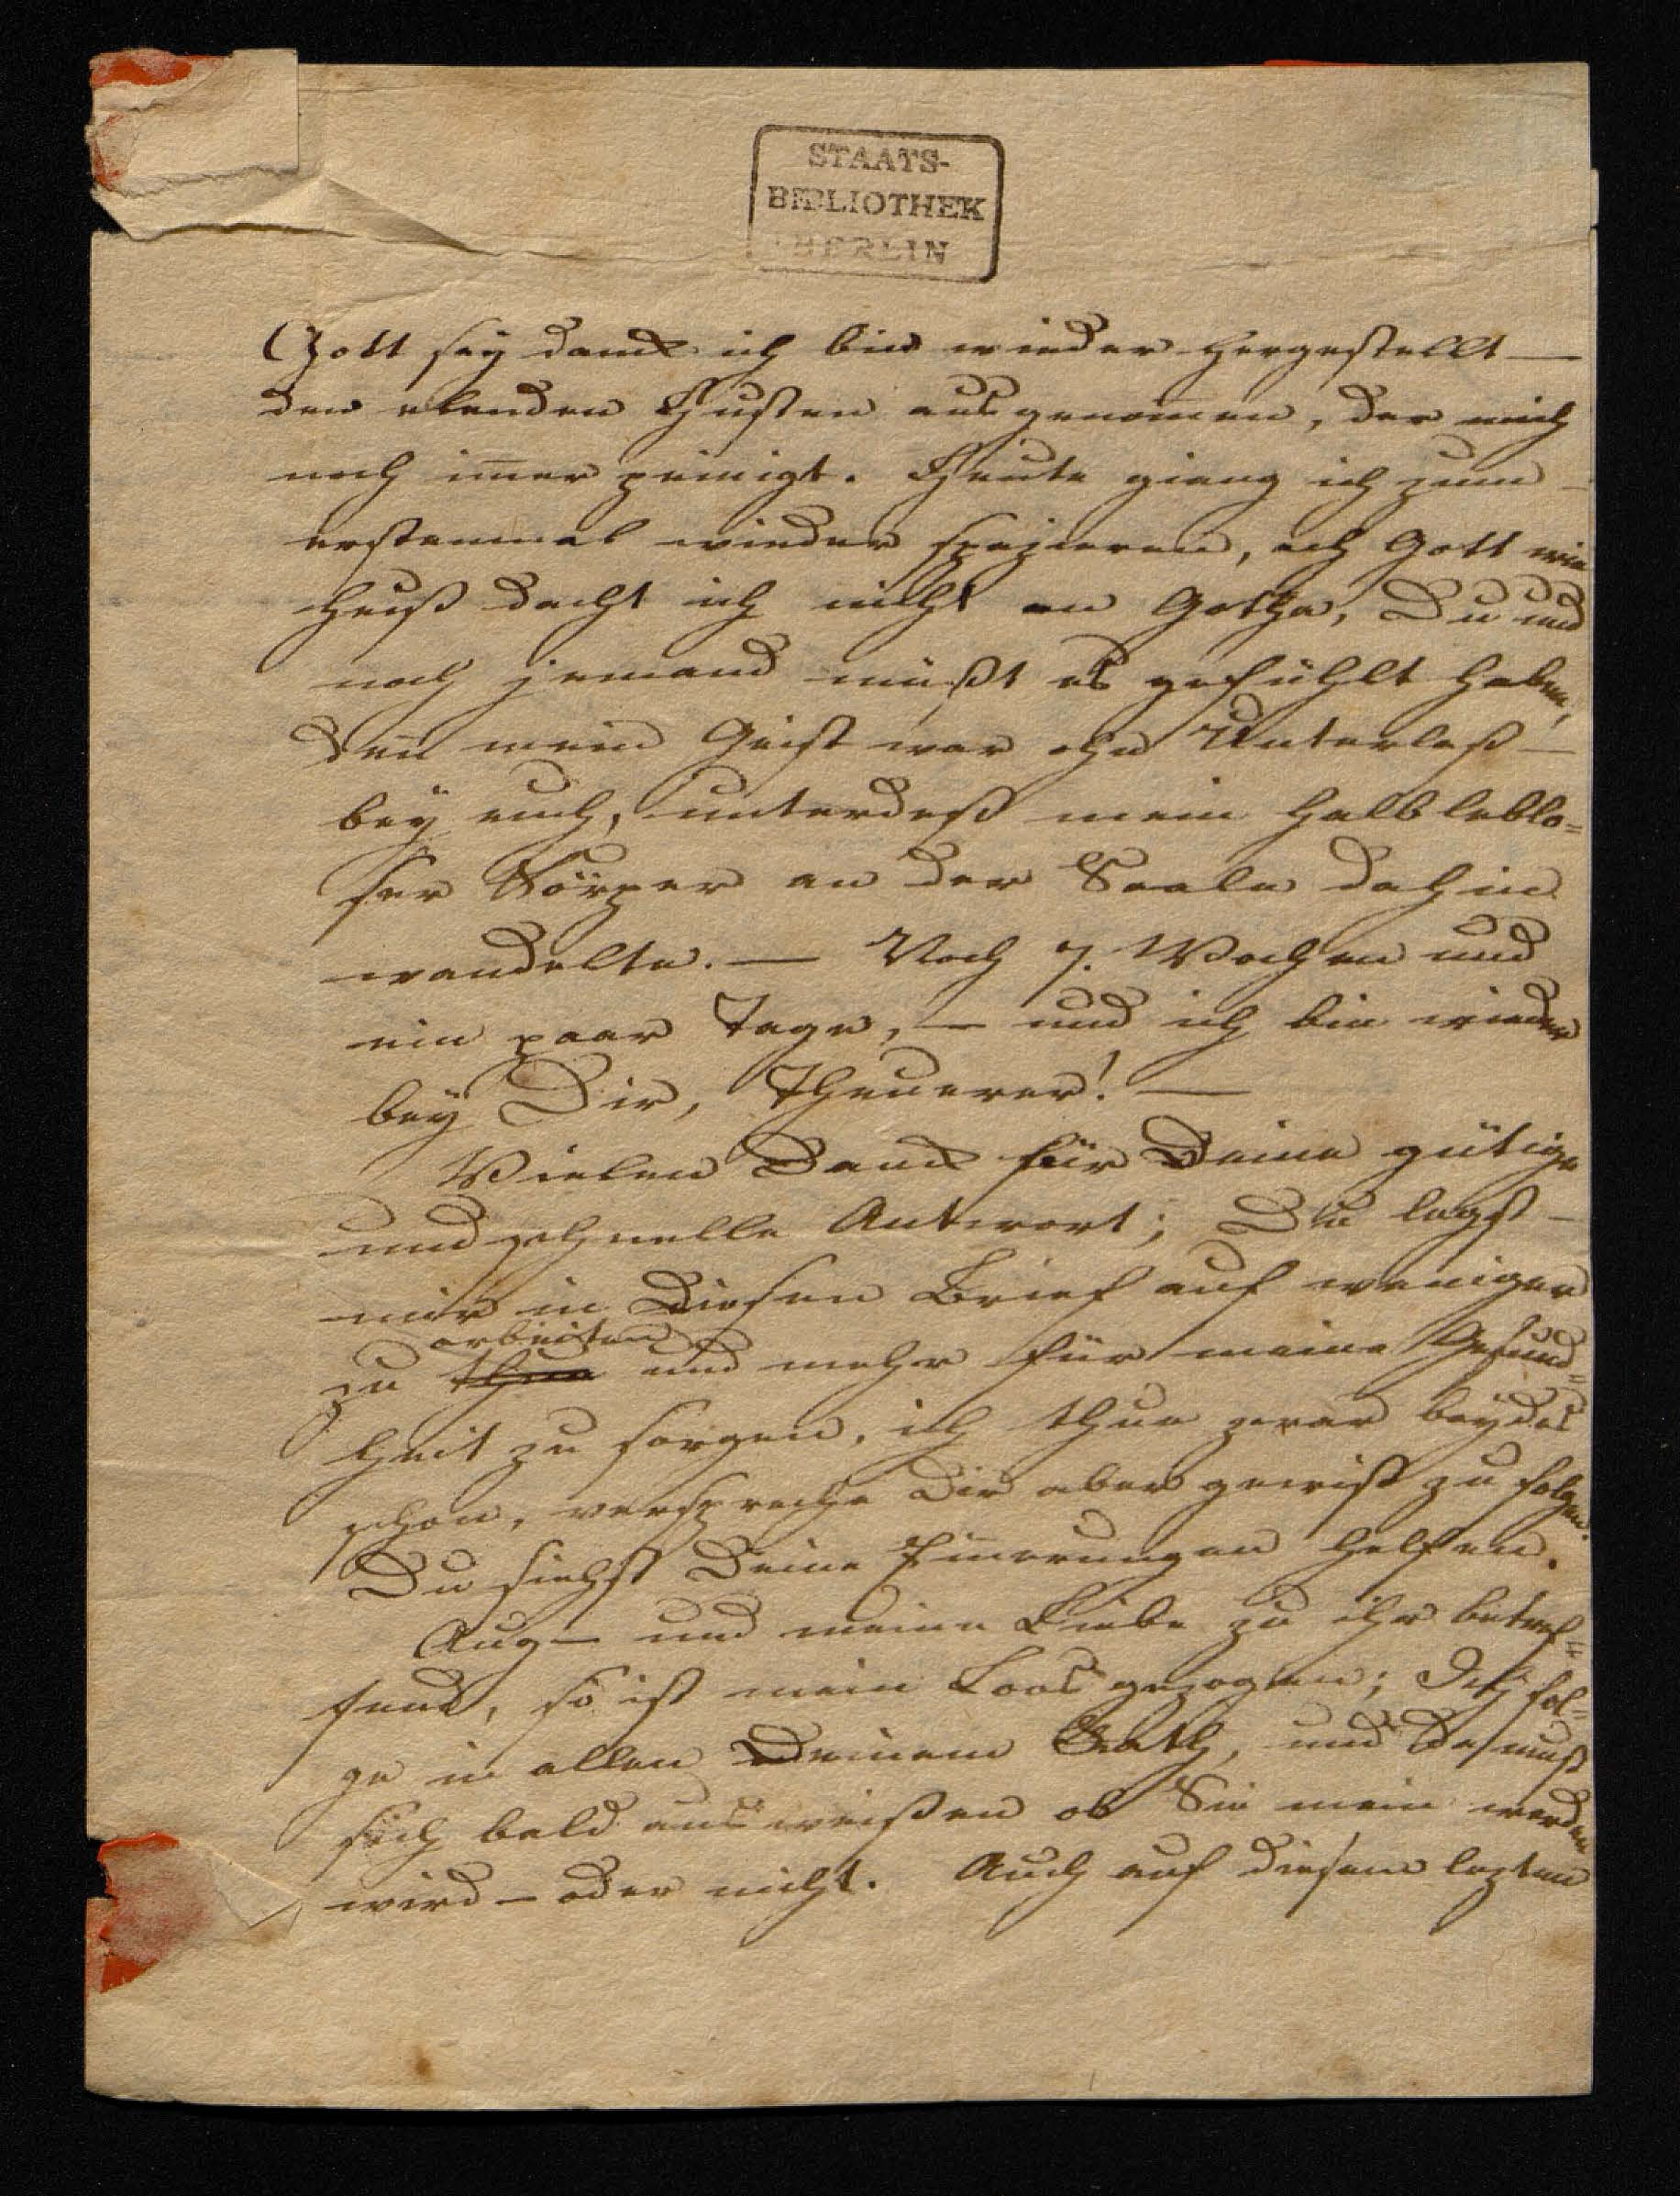 STAATS-
BIBLIOTHEK
BERLIN
Gott sey danck ich bin wieder hergestellt —
den elenden Husten ausgenom̄en, der mich
noch im̄er peinigt. Heute gieng ich zum —
erstenmal wieder spazieren, ach Gott wie
heiß dacht ich nicht an Gotha, Du und
noch jemand müßt es gefühlt haben,
den̄ mein Geist war ohn Unterlaß —
bey euch, unterdeß mein halb leblo=
ser Körper an der Saale dahin
wandelte. — Noch 7. Wochen und
ein paar Tage, — und ich bin wieder
bey Dir, Theuerer! —
Vielen Danck für Deine gütige
und schnelle Antwort; Du legst —
mir in Diesen Brief auf weniger
arbeiten
zu thun und mehr für meine Gesund=
heit zu sorgen, ich thue zwar beydes
schon, verspreche Dir aber gewiß zu folgen.
Du siehst Deine Erin̄erungen helfen.
Aug — und meine Liebe zu ihr betref=
fend, so ist mein Loos gezogen; Ich fol=
ge in allen Deinem Rath, und Da muß
sich bald ausweißen ob Sie mein werden
wird — oder nicht. Auch auf diesem lezten